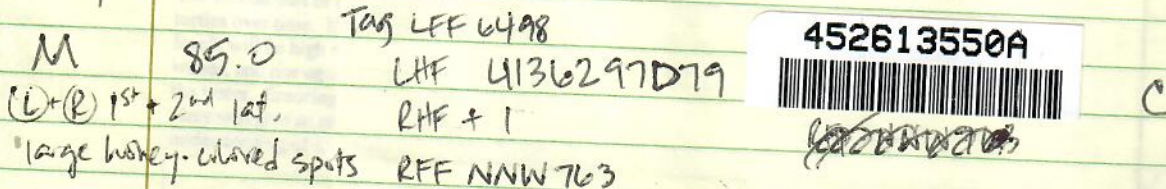 Tag LFF 6498
M 85.0 LHF 4136297D79
(L)+(R) 1st + 2nd lat. RHF + 1
large honey-colored spots RFF NNW 763
452613550A
C